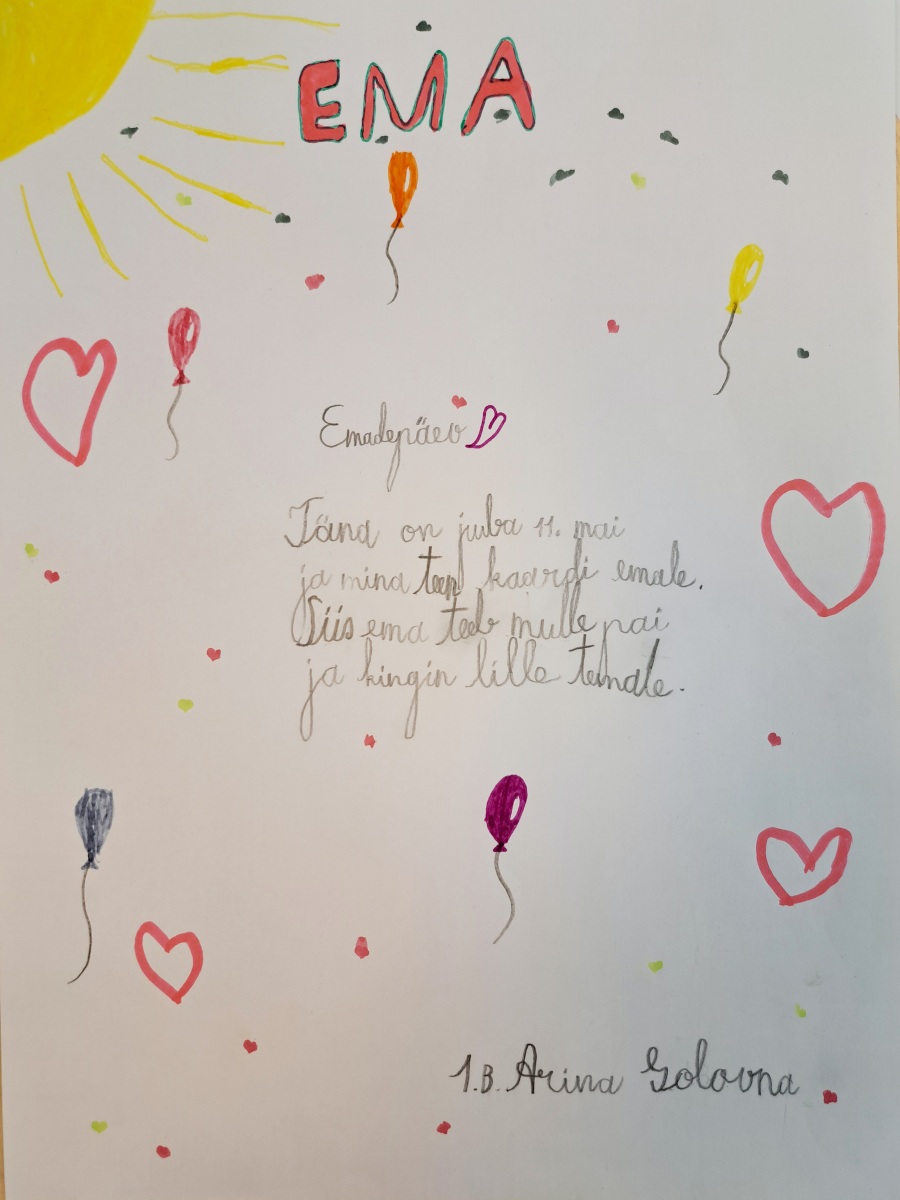 EMA
Emadepäev
Täna on juba 11. mai
ja mina teen kaardi emale.
Siis ema teeb mulle pai
ja kingin lille temale.
1.B. Arina Golovna